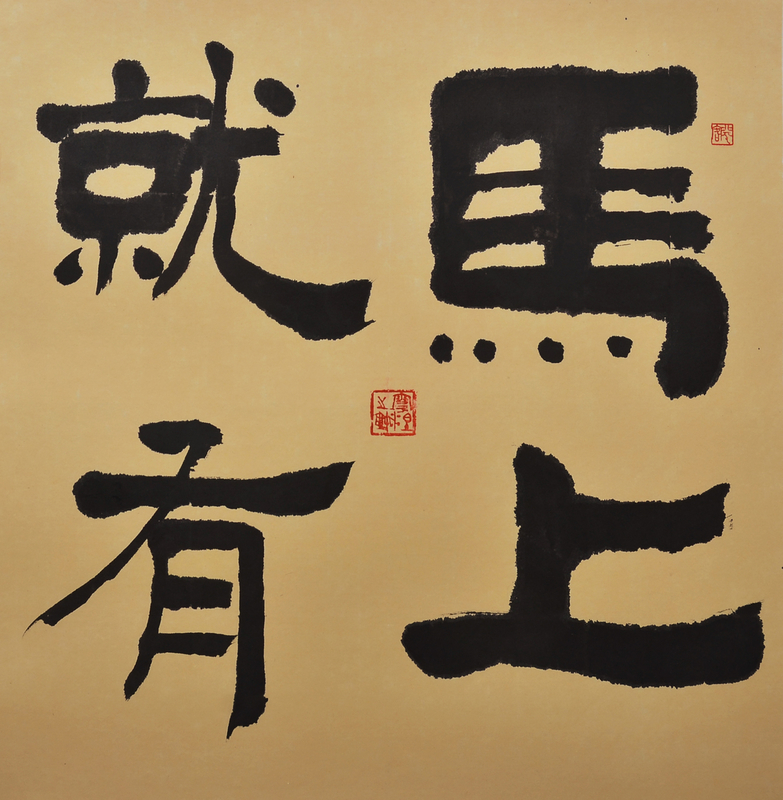 馬上
就有